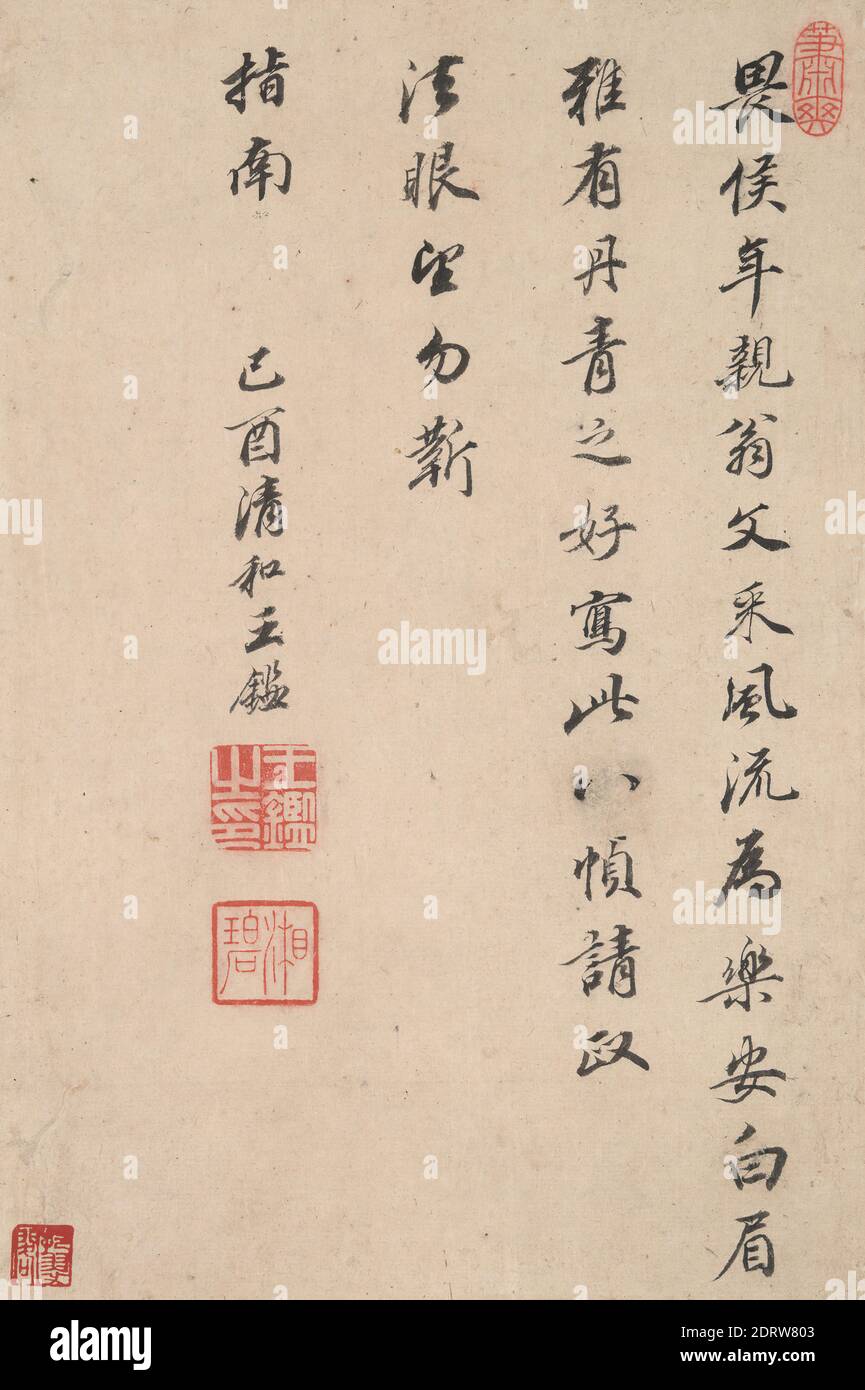 畏侯年親翁文采風流為樂安白眉
雅有丹青之好寫此八幀請政
法眼望勿靳
指南
己酉清和王鑑
王鑑之印
湘碧
alamy
Image ID: 2DRW803
www.alamy.com